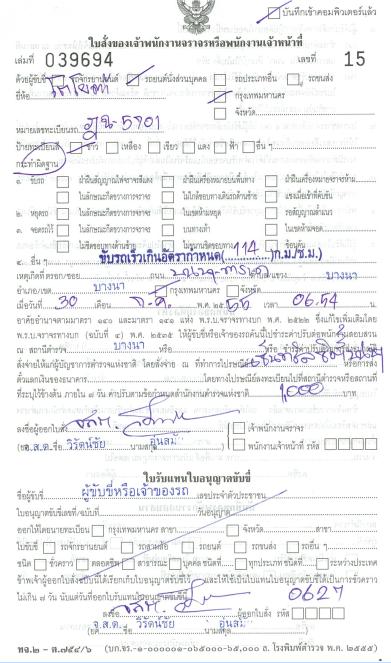 บันทึกเข้าคอมพิวเตอร์แล้ว
ใบสั่งของเจ้าพนักงานจราจรหรือพนักงานเจ้าหน้าที่
เล่มที่ 039694 เลขที่ 15
ด้วยผู้ขับขี่ รถจักรยานยนต์ รถยนต์นั่งส่วนบุคคล รถประเภทอื่น รถขนส่ง
ยี่ห้อ โตโยต้า กรุงเทพมหานคร
จังหวัด
หมายเลขทะเบียนรถ ฎน-5701
ป้ายทะเบียนสี ขาว เหลือง เขียว แดง ฟ้า อื่น ๆ
กระทำผิดฐาน
๑. ขับรถ ฝ่าฝืนสัญญาณไฟจราจรสีแดง ฝ่าฝืนเครื่องหมายบนพื้นทาง ฝ่าฝืนเครื่องหมายจราจรห้าม
ในลักษณะกีดขวางการจราจร ไม่ใกล้ขอบทางเดินรถด้านซ้าย แซงเมื่อเข้าที่คับขัน
๒. หยุดรถ ในลักษณะกีดขวางการจราจร ในเขตห้ามหยุด
๓. จอดรถไว้ ในลักษณะกีดขวางการจราจร บนทางเท้า ในเขตห้ามจอด
ไม่ชิดขอบทางด้านซ้าย ซ้อนคัน
๔. อื่น ๆ ขับรถเร็วเกินอัตรากำหนด(114)ก.ม./ช.ม.)
เหตุเกิดที่ ตรอก/ซอย ถนน บางนา-ตราด แขวง บางนา
อำเภอ/เขต บางนา กรุงเทพมหานคร จังหวัด
เมื่อวันที่ 30 เดือน พ.ศ. ๒๕55 เวลา 06.54 น.
อาศัยอำนาจตามมาตรา ๑๔๐ และมาตรา ๑๔๑ แห่ง พ.ร.บ.จราจรทางบก พ.ศ. ๒๕๒๒ ซึ่งแก้ไขเพิ่มเติมโดย
พ.ร.บ.จราจรทางบก (ฉบับที่ ๔) พ.ศ. ๒๕๓๕ ให้ผู้ขับขี่หรือเจ้าของรถคันนี้ไปชำระค่าปรับต่อพนักงานสอบสวน
ณ สถานีตำรวจ บางนา หรือ
สั่งจ่ายให้แก่ผู้บัญชาการตำรวจแห่งชาติ โดยสั่งจ่าย ณ ที่ทำการไปรษณีย์ หรือการสั่ง
ตัวแลกเงินของธนาคาร โดยทางไปรษณีย์ลงทะเบียนไปที่สถานีตำรวจหรือสถานที่
ที่ระบุไว้ข้างต้น ภายใน ๗ วัน ค่าปรับตามข้อกำหนดสำนักงานตำรวจแห่งชาติ 1,000 บาท
ลงชื่อผู้ออกใบสั่ง จสต. เจ้าพนักงานจราจร
จ.ส.ต. วิรัตน์ชัย อุ่นสม พนักงานเจ้าหน้าที่ รหัส
ใบรับแทนใบอนุญาตขับขี่
ชื่อผู้ขับขี่ ผู้ขับขี่หรือเจ้าของรถ เลขประจำตัวประชาชน
ใบอนุญาตขับขี่เลขที่/ฉบับที่ วันอนุญาต
ออกให้โดยนายทะเบียน กรุงเทพมหานคร สาขา จังหวัด สาขา
ใบขับขี่ รถจักรยานยนต์ รถสามล้อ รถยนต์ รถขนส่ง รถอื่น ๆ
ชนิด ชั่วคราว ตลอดชีพ สาธารณะ บุคคล ชนิดที่ ทุกประเภท ชนิดที่ ระหว่างประเทศ
ข้าพเจ้าผู้ออกใบสั่งได้เรียกเก็บใบอนุญาตขับขี่ไว้ และให้ใช้ใบรับแทนใบอนุญาตขับขี่ได้เป็นการชั่วคราว
ไม่เกิน ๗ วัน นับแต่วันที่ออกใบรับแทนใบอนุญาตขับขี่นี้ 0627
ลงชื่อ จสต. ผู้ออกใบสั่ง รหัส
จ.ส.ต. วิรัตน์ชัย อุ่นสม
ทจ.๒ - ต.๗๕๔/๖ (บก.จร.-๑-๐๐๐๐๐๑-๐๖๕๐๐๐-๖๕,๐๐๐ ล. โรงพิมพ์ตำรวจ พ.ศ. ๒๕๕๕)